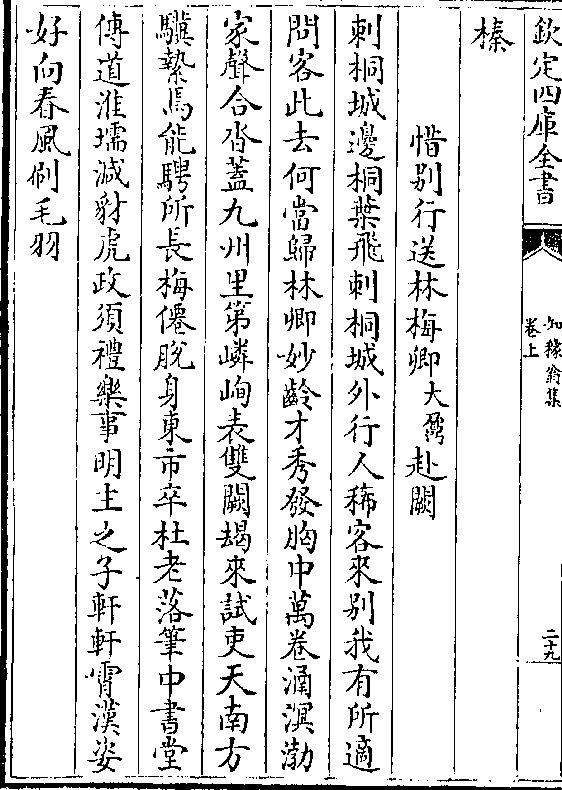 欽定四庫全書
知稼翁集
卷上
二十九
榛
惜別行送林梅卿大鼐赴闕
刺桐城邊桐葉飛刺桐城外行人稀客來別我有所適
問客此去何當歸林卿妙齡才秀發胸中萬卷涌溟渤
家聲合沓蓋九州里第嶙峋表雙闕朅來試吏天南方
驥縶焉能騁所長梅僊脫身東市卒杜老落筆中書堂
傳道淮壖減豺虎政須禮樂事明主之子軒軒霄漢姿
好向春風刷毛羽